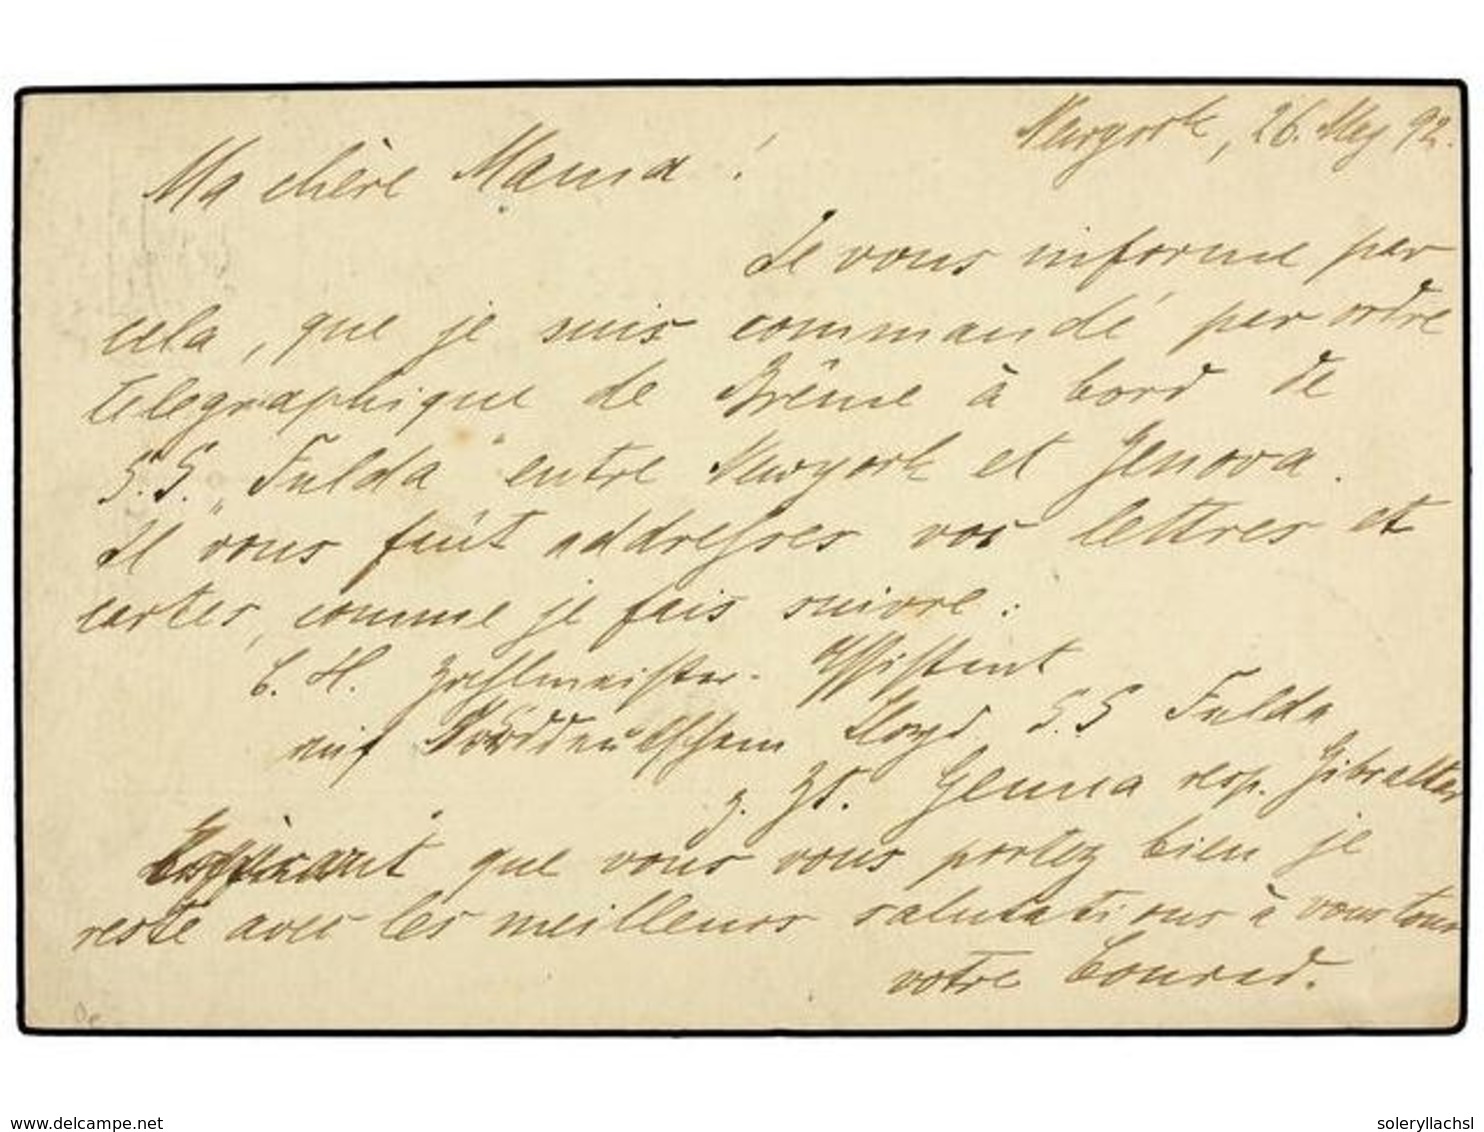 Newyork, 26. May 92.
Ma chère Mama !
Je vous informe par
cela, que je suis commandé par ordre
telegraphique de Brême à bord de
S.S. „Fulda“ entre Newyork et Genova.
Il vous faut addresser vos lettres et
cartes, comme je fais suivre:
C. H. Zahlmeister-Assistent
auf Norddeutschem Lloyd S.S Fulda
z. Zt. Genua resp. Gibraltar
Espérant que vous vous portez bien je
reste avec les meilleurs salutations à vous tous
votre Conrad.
delcampe.net
soleryllachsl